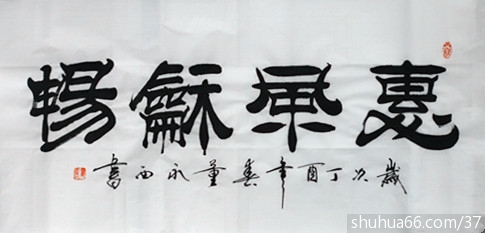 惠風龢暢
歲次丁酉年春董永西書
shuhua66.com/37